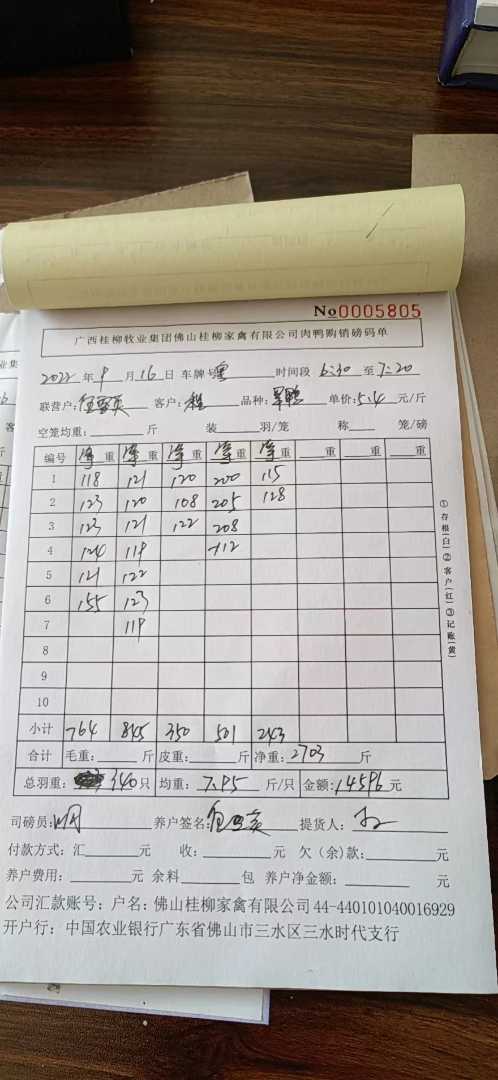 No0005805
广西桂柳牧业集团佛山桂柳家禽有限公司肉鸭购销磅码单
2022年9月16日 车牌号粤 时间段6:30至7:20
联营户: 客户:程 品种:旱鸭 单价:5.4元/斤
空笼均重:斤 装羽/笼 称笼/磅
编号 净重 净重 净重 净重 净重 重 重 重
1 118 121 120 200 115
2 123 120 108 205 128
3 123 121 122 208
4 124 119 -112
5 121 122
6 155 123
7 119
8
9
10
小计 764 845 350 501 243
合计 毛重:斤 皮重:斤 净重:2703斤
总羽重:340只 均重:7.95斤/只 金额:14596元
司磅员: 养户签名: 提货人:
付款方式:汇元 收:元 欠(余)款:元
养户费用:元 余料包 养户净金额:元
公司汇款账号:户名:佛山桂柳家禽有限公司44-440101040016929
开户行:中国农业银行广东省佛山市三水区三水时代支行
①存根(白)②客户(红)③记账(黄)